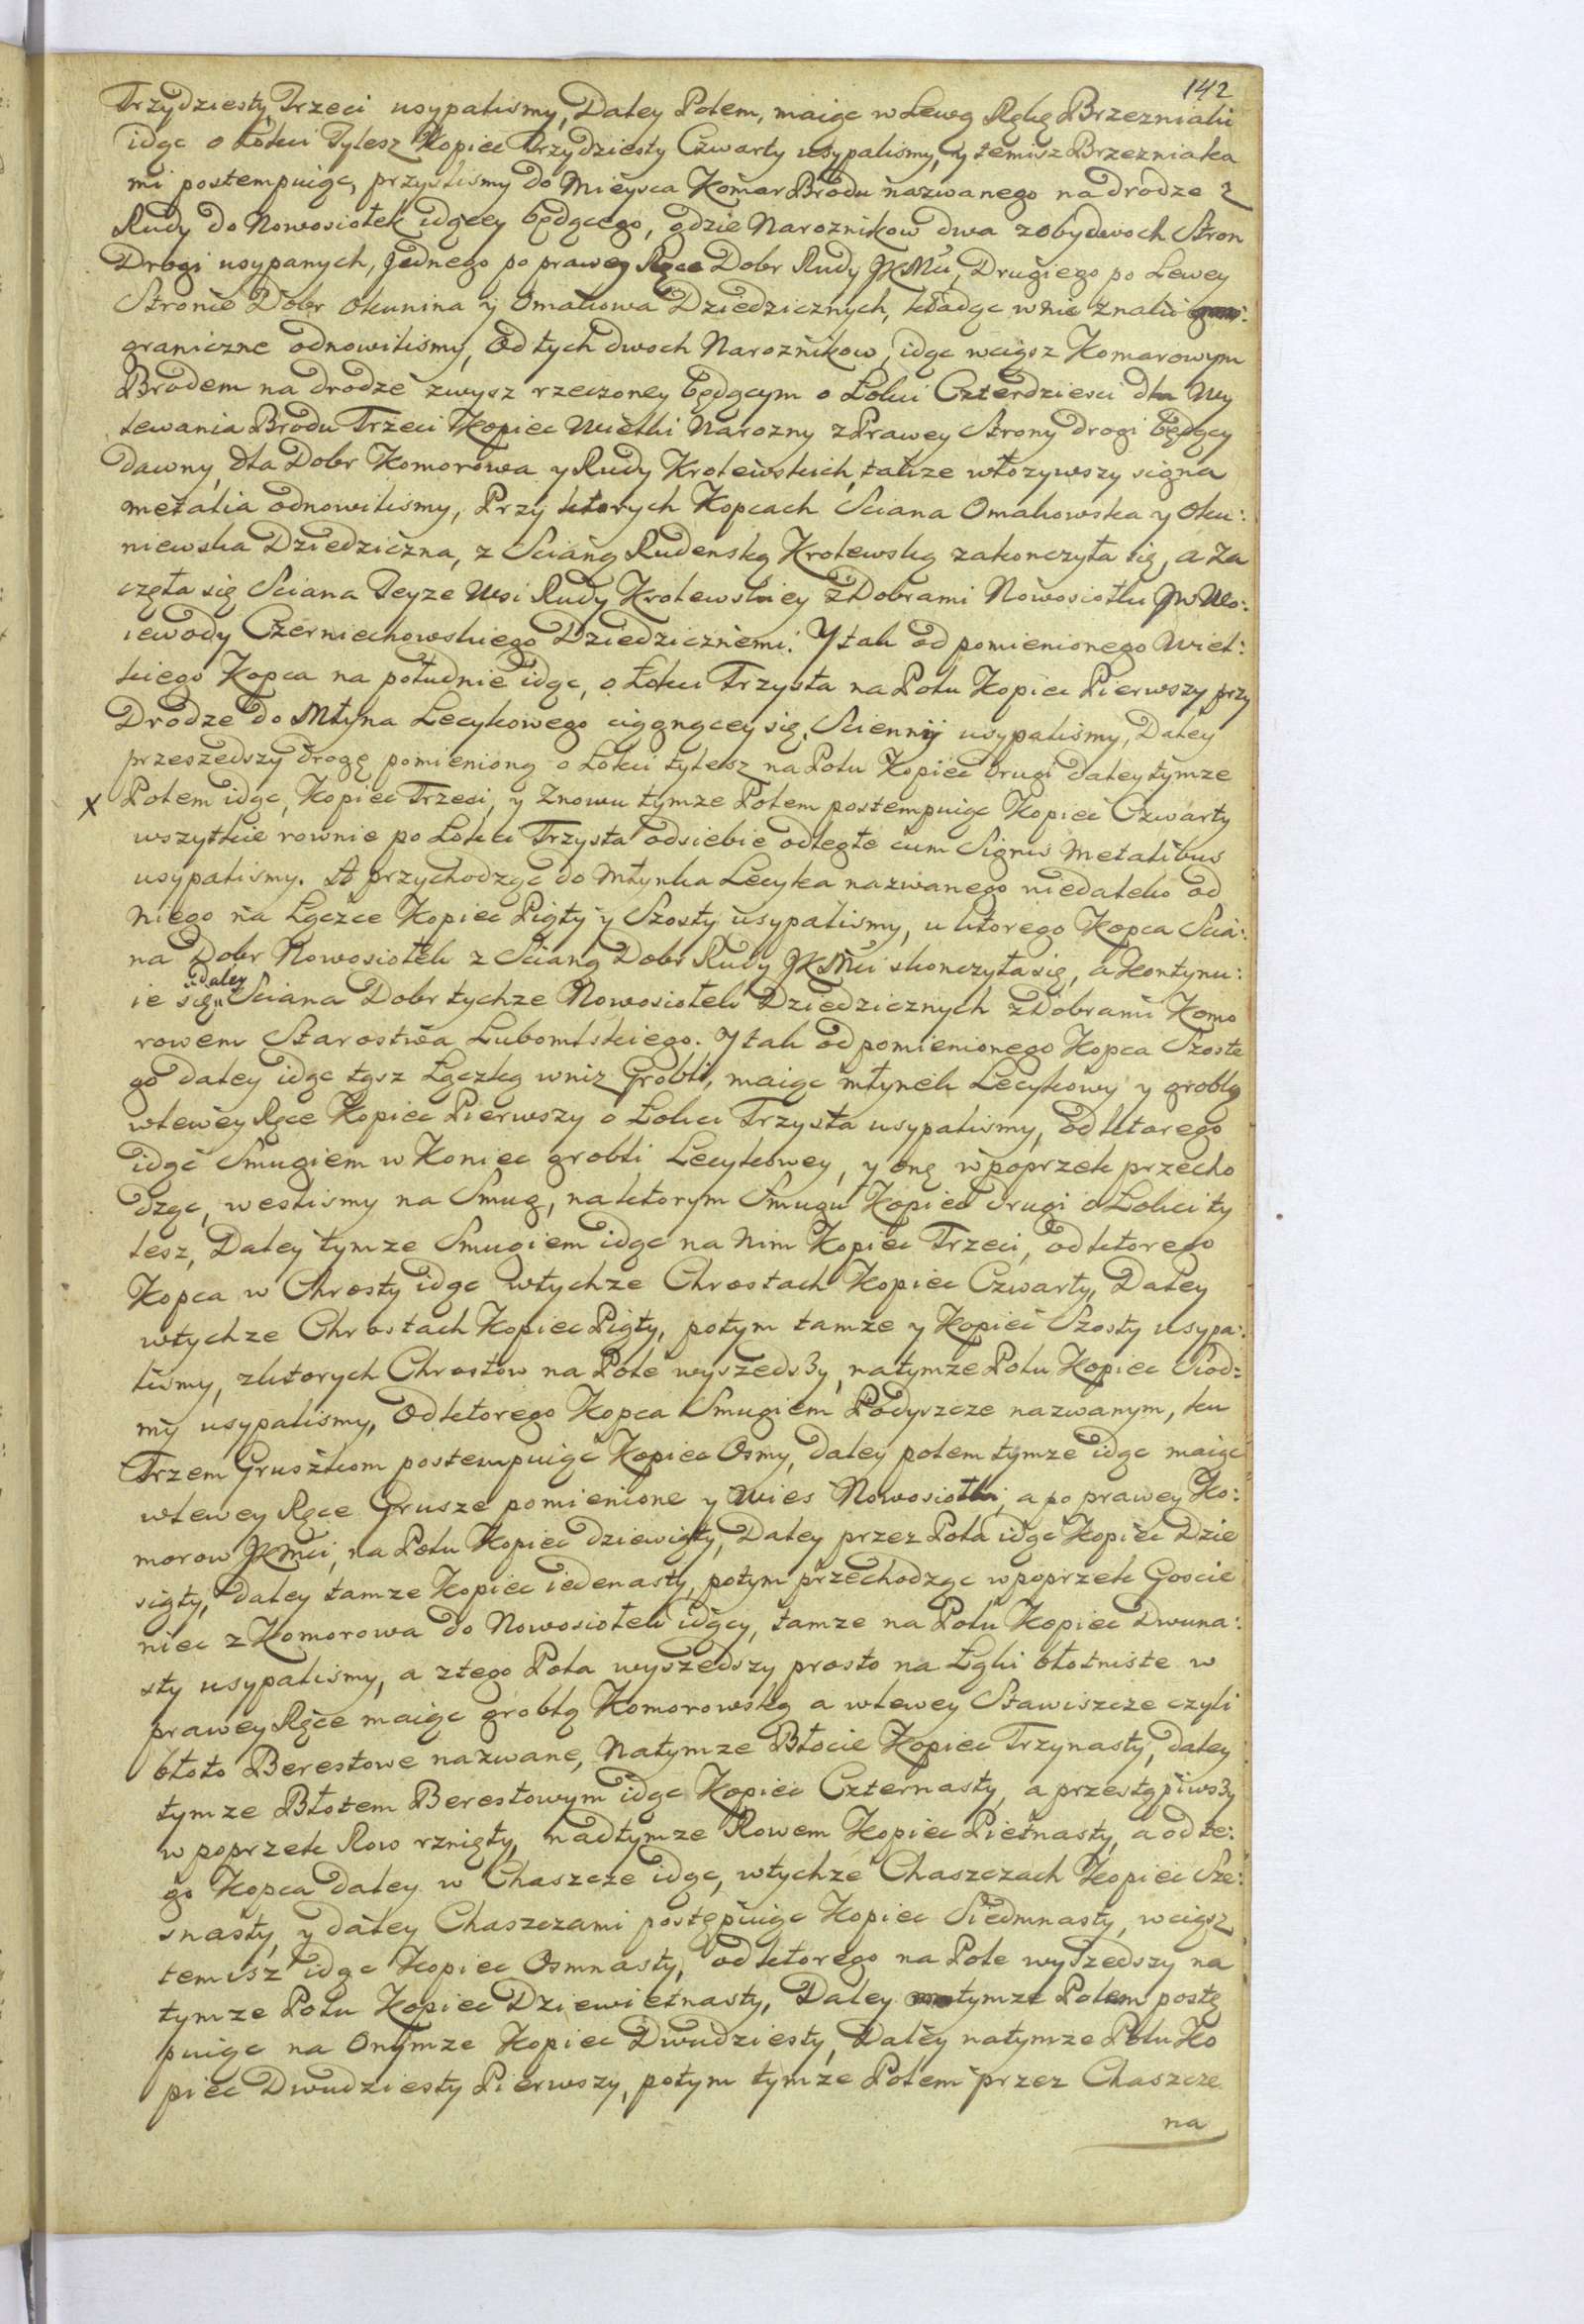 142
Trzydziesty Trzeci usypalismy, Daley Polem, maiąc w Lewą Rękę Brzezniaki
idąc o Łokci Tylesz Kopiec Trzydziesty Czwarty usypalismy, y temisz Brzezniaka
mi postempuiąc, przyszlismy do Mieysca Komar Brodu nazwanego na drodze z
Rudy do Nowosiołek idącey będącego, gdzie Naroznikow dwa z obydwoch Stron
Drogi usypanych, Jednego po prawey Ręce Dobr Rudy JKMci, Drugiego po Lewey
Stronie Dobr Okunina y Omakowa Dziedzicznych, kładąc w nie znaki
graniczne odnowilismy, Od tych dwoch Naroznikow, idąc wciąsz Komarowym
Brodem na drodze zwysz rzeczoney będącym o Łokci Czterdziesci dla Wy
lewania Brodu Trzeci Kopiec Wielki Narozny z Prawey Strony drogi będący
dawny, dla Dobr Komorowa y Rudy Krolewskich, takze włozywszy signa
metalia odnowilismy, Przy ktorych Kopcach Sciana Omakowska y Oku:
niewska Dziedziczna, z Scianą Rudenską Krolewską zakonczyła się, a Za
częła się Sciana Teyze Wsi Rudy Krolewskiey z Dobrami Nowosiołki JW Wo:
iewody Czerniechowskiego Dziedzicznemi. Y tak od pomienionego Wiel:
kiego Kopca na południe idąc, o Łokci Trzysta na Polu Kopiec Pierwszy przy
Drodze do Młyna Lecykowego ciągnącey się, Scienny usypalismy, Daley
przeszedszy drogę pomienioną o Łokci tylesz na Polu Kopiec Drugi daley tymze
x Polem idąc, Kopiec Trzeci, y Znowu tymze Polem postempuiąc Kopiec Czwarty
wszytkie rownie po Łokci Trzysta od siebie odległe cum Signis Metalibus
usypalismy. A przychodząc do Młynka Lecyka nazwanego niedaleko od
niego na Łączce Kopiec Piąty y Szosty usypalismy, u ktorego Kopca Scia:
na Dobr Nowosiołek z Scianą Dobr Rudy JKMci skonczyła się, a kontynu:
ie się daley Sciana Dobr tychze Nowosiołek Dziedzicznych z Dobrami Komo
rowem Starostwa Lubomlskiego. Y tak od pomienionego Kopca Szoste
go daley idąc tąsz Łączką wniz Grobli, maiąc młynek Lecykowy y groblą
w lewey Ręce Kopiec Pierwszy o Łokci Trzysta usypalismy, od ktorego
idąc Smugiem w Koniec grobli Lecykowey, y onę w poprzek przecho
dząc, weslismy na Smug, na ktorym Smugu Kopiec drugi o Łokci ty
lesz, Daley tymze Smugiem idąc na Nim Kopiec Trzeci, od ktorego
Kopca w Chrosty idąc w tychze Chrostach Kopiec Czwarty, Daley
w tychze Chrostach Kopiec Piąty, potym tamze y Kopiec Szosty usypa:
lismy, z ktorych Chrostow na Pole wyszedszy, na tymze Polu Kopiec Siod:
my usypalismy, Od ktorego Kopca Smugiem Podyszcze nazwanym, ku
Trzem Gruszkom postempuiąc Kopiec Osmy, daley polem tymze idąc maiąc
w lewey Ręce Grusze pomienione y Wies Nowosiołki, a po prawey Ko:
morow JKMci, na Polu Kopiec dziewiąty, Daley przez Pola idąc Kopiec Dzie
siąty, daley tamze Kopiec iedenasty, potym przechodząc w poprzek Goscie
niec z Komorowa do Nowosiołek idący, tamze na Polu Kopiec Dwuna:
sty usypalismy, a z tego Pola wyszedszy prosto na Łąki błotniste w
prawey Ręce maiąc groblą Komorowską a w lewey Stawiszcze czyli
błoto Berestowe nazwane, Na tymze Błocie Kopiec Trzynasty, daley
tymze Błotem Berestowym idąc Kopiec Czternasty, a przestąpiwszy
w poprzek Row rznięty, nad tymze Rowem Kopiec Pietnasty, a od te:
go Kopca daley w Chaszcze idąc, w tychze Chaszczach Kopiec Sze:
snasty, y daley Chaszczami postępuiąc Kopiec Siedmnasty, wciąsz
temisz idąc Kopiec Osmnasty, od ktorego na Pole wyszedszy na
tymze Polu Kopiec Dziewietnasty, Daley tymze Polem postę
puiąc na Onymze Kopiec Dwudziesty, Daley na tymze Polu Ko
piec Dwudziesty Pierwszy, potym tymze Polem przez Chaszcze
na